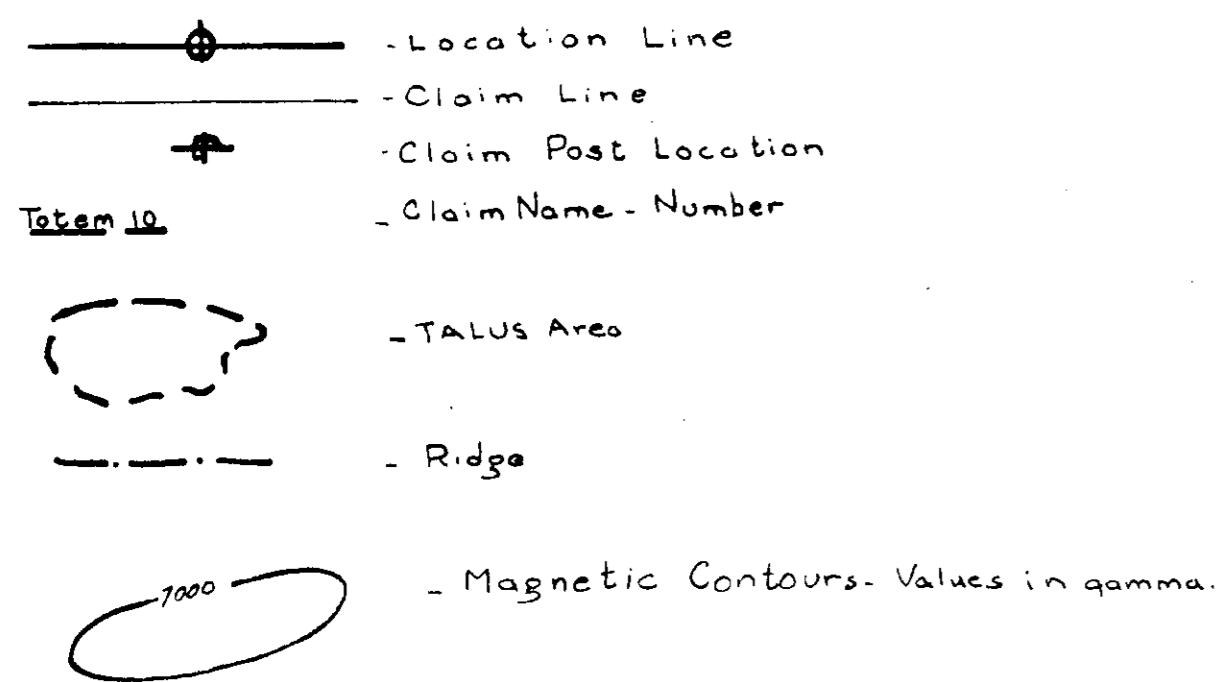 - Location Line
- Claim Line
- Claim Post Location
Totem 10 - Claim Name - Number
- TALUS Area
- Ridge
7000 - Magnetic Contours - Values in gamma.